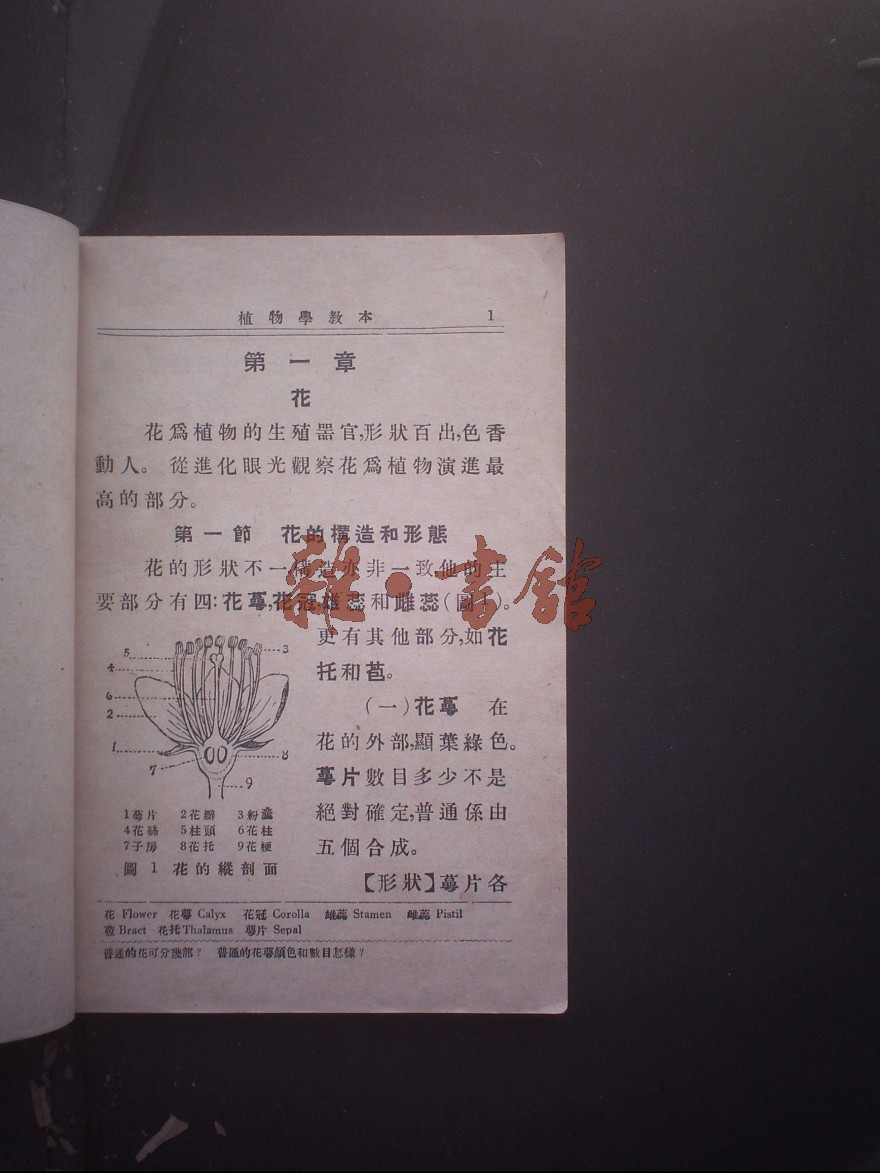 植物學教本 1
第一章
花
花爲植物的生殖器官,形狀百出,色香
動人。從進化眼光觀察花爲植物演進最
高的部分。
第一節 花的構造和形態
花的形狀不一,構造亦非一致他的主
要部分有四:花萼,花冠,雄蕊和雌蕊(圖1)。
更有其他部分,如花
托和苞。
(一)花萼 在
花的外部,顯葉綠色。
萼片數目多少不是
絕對確定,普通係由
五個合成。
【形狀】萼片各
5 3
4
6
2
1 8
7
9
1萼片 2花瓣 3粉囊
4花絲 5柱頭 6花柱
7子房 8花托 9花梗
圖1 花的縱剖面
花 Flower 花萼 Calyx 花冠 Corolla 雄蕊 Stamen 雌蕊 Pistil
苞 Bract 花托 Thalamus 萼片 Sepal
普通的花可分幾部? 普通的花萼顏色和數目怎樣?
雜·書館